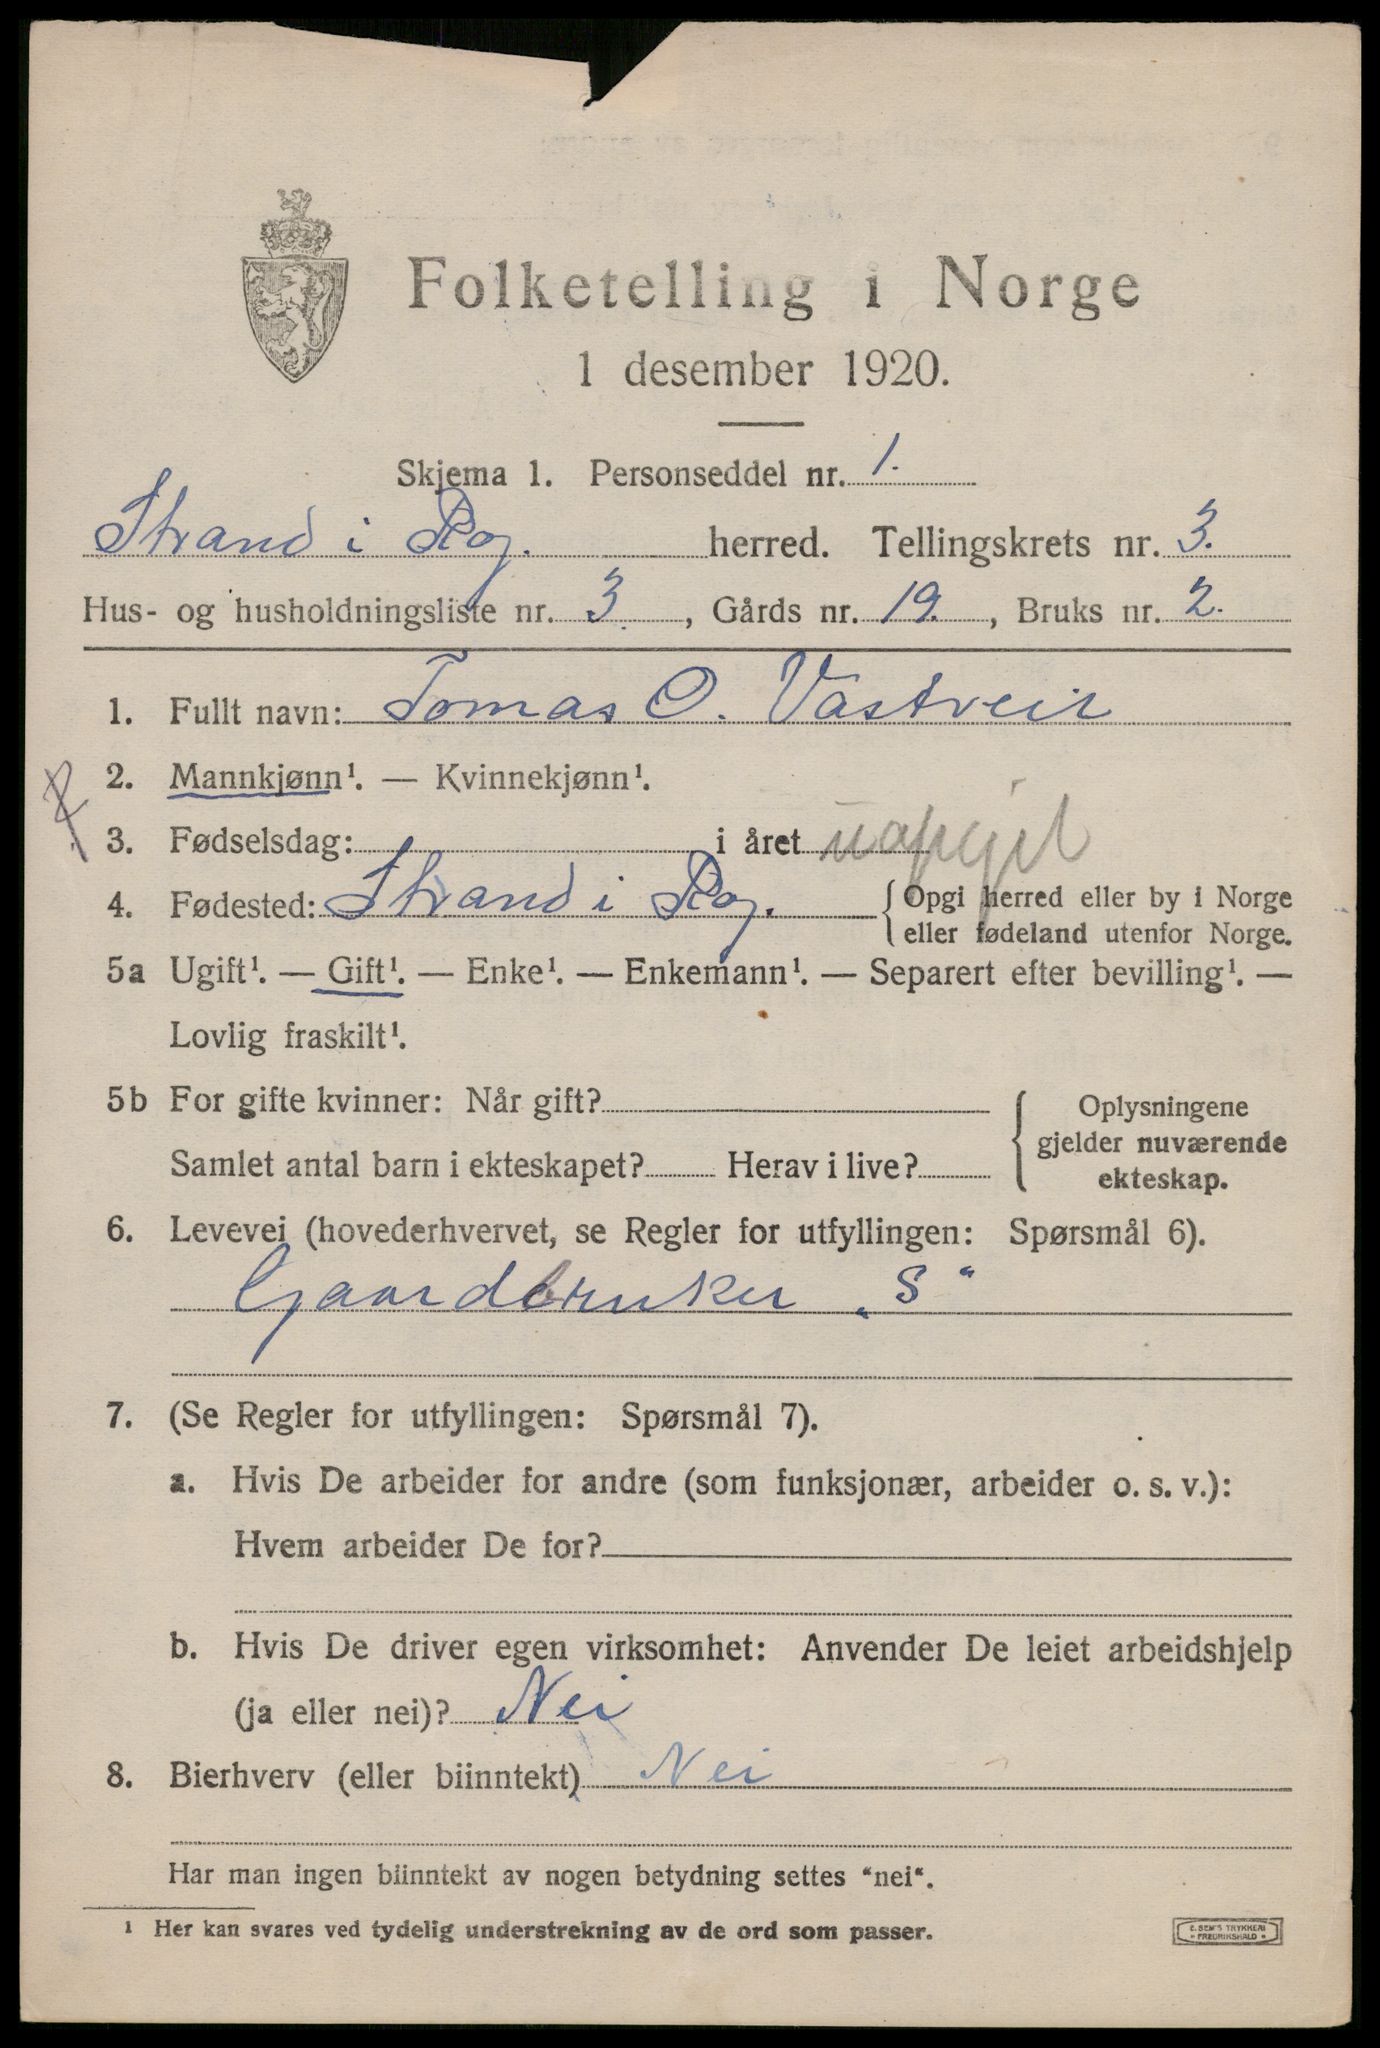 Folketelling i Norge
1 desember 1920.
Skjema 1. Personseddel nr. 1.
Strand i Rog. herred. Tellingskrets nr. 3.
Hus- og husholdningsliste nr. 3, Gårds nr. 19., Bruks nr. 2.
1. Fullt navn: Tomas O. Vastveit
2. Mannkjønn¹. — Kvinnekjønn¹.
3. Fødselsdag: i året uopgit
4. Fødested: Strand i Rog. { Opgi herred eller by i Norge
eller fødeland utenfor Norge.
5a Ugift¹. — Gift¹. — Enke¹. — Enkemann¹. — Separert efter bevilling¹. —
Lovlig fraskilt¹.
5b For gifte kvinner: Når gift?
Samlet antal barn i ekteskapet? Herav i live?
{ Oplysningene
gjelder nuværende
ekteskap.
6. Levevei (hovederhvervet, se Regler for utfyllingen: Spørsmål 6).
Gaardbruker „S“
7. (Se Regler for utfyllingen: Spørsmål 7).
a. Hvis De arbeider for andre (som funksjonær, arbeider o. s. v.):
Hvem arbeider De for?
b. Hvis De driver egen virksomhet: Anvender De leiet arbeidshjelp
(ja eller nei)? Nei
8. Bierhverv (eller biinntekt) Nei
Har man ingen biinntekt av nogen betydning settes “nei“.
¹ Her kan svares ved tydelig understrekning av de ord som passer.
E. SEM'S TRYKKERI
» FREDRIKSHALD »